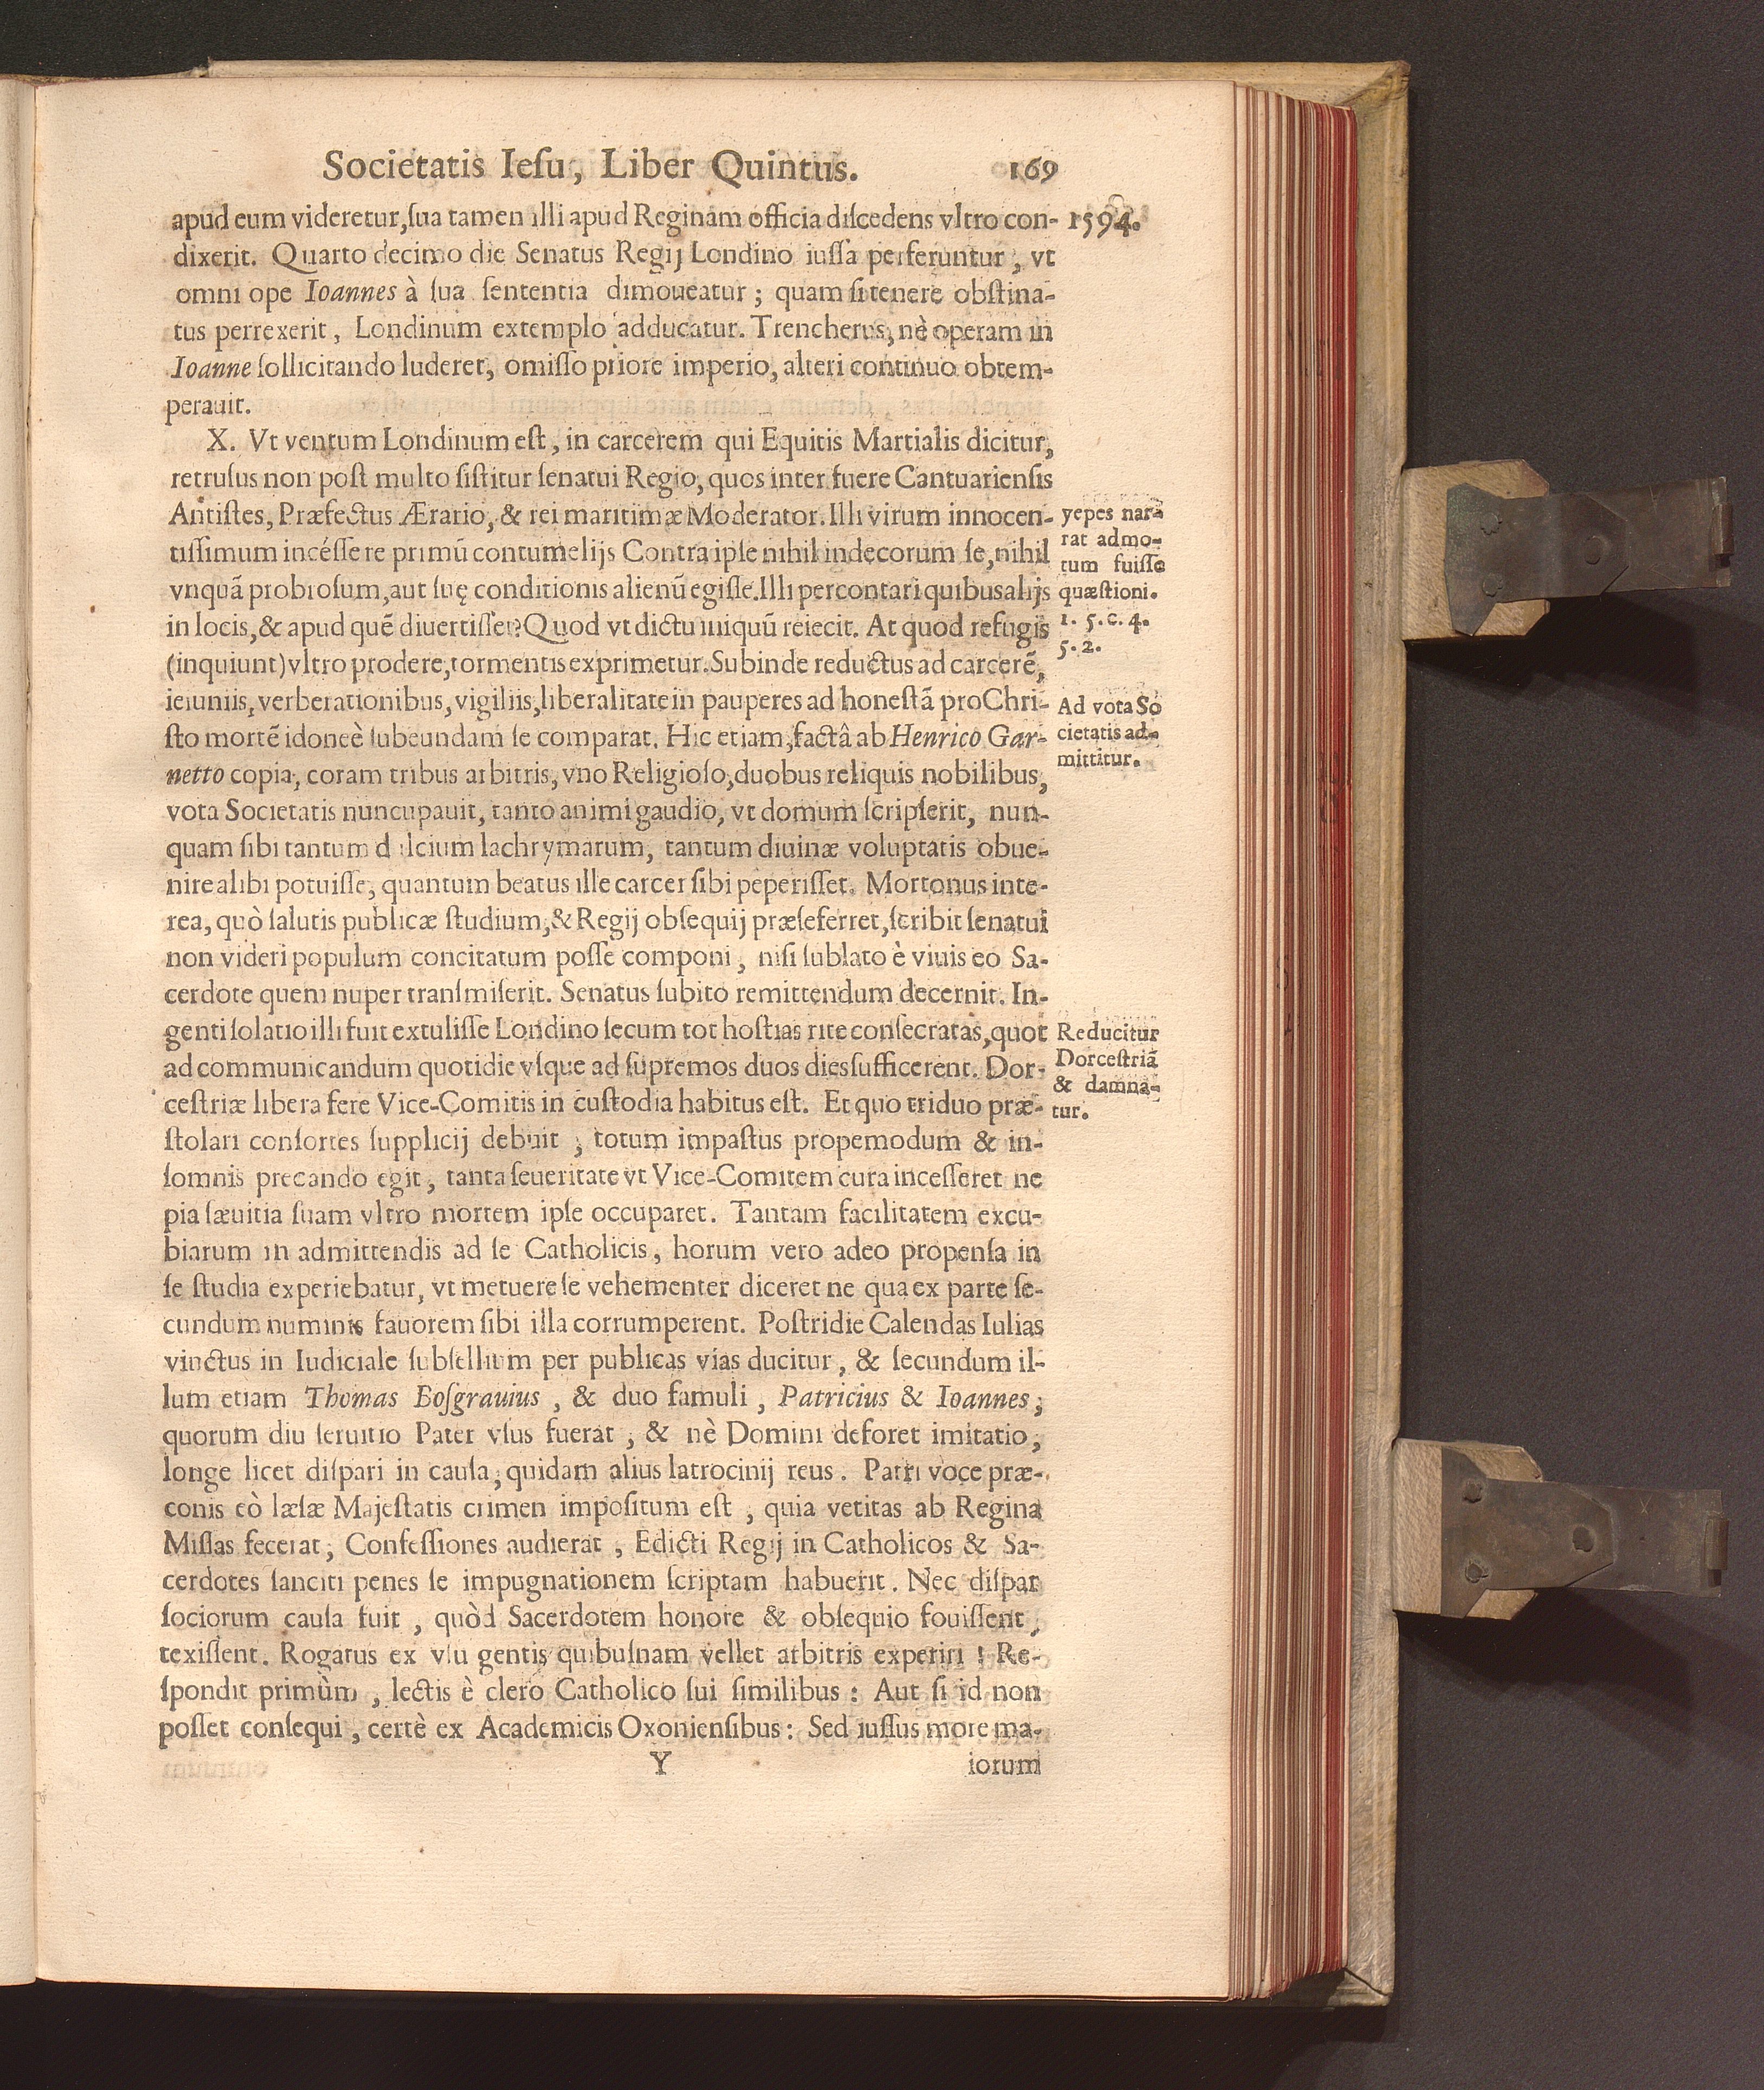 Societatis Iesu, Liber Quintus. 169
apud eum videretur, sua tamen illi apud Reginam officia discedens vltro con-
1594.
dixerit. Quarto decimo die Senatus Regij Londino iussa perferuntur, vt
omni ope Ioannes à sua sententia dimoueatur; quam si tenere obstina-
tus perrexerit, Londinum extemplo adducatur. Trencherus, nè operam in
Ioanne sollicitando luderet, omisso priore imperio, alteri continuo obtem-
perauit.
X. Vt ventum Londinum est, in carcerem qui Equitis Martialis dicitur,
retrusus non post multo sistitur senatui Regio, quos inter fuere Cantuariensis
Antistes, Præfectus Ærario, & rei maritimæ Moderator. Illi virum innocen-
tissimum incéssere primū contumelijs Contra ipse nihil indecorum se, nihil
vnquã probrosum, aut suę conditionis alienū egisse. Illi percontari quibus alijs
in locis, & apud quē diuertisset? Quod vt dictu iniquū reiecit. At quod refugis
(inquiunt) vltro prodere, tormentis exprimetur. Subinde reductus ad carcerē,
yepes nar-
rat admo-
tum fuisse
quæstioni.
1. 5. c. 4.
5. 2.
ieiuniis, verberationibus, vigiliis, liberalitate in pauperes ad honestã pro Chri-
sto mortē idoneè subeundam se comparat. Hic etiam, factâ ab Henrico Gar-
netto copia, coram tribus arbitris, vno Religioso, duobus reliquis nobilibus,
Ad vota So
cietatis ad-
mittitur.
vota Societatis nuncupauit, tanto animi gaudio, vt domum scripserit, nun-
quam sibi tantum dulcium lachrymarum, tantum diuinæ voluptatis obue-
nire alibi potuisse, quantum beatus ille carcer sibi peperisset. Mortonus inte-
rea, quò salutis publicæ studium, & Regij obsequij præseferret, scribit senatui
non videri populum concitatum posse componi, nisi sublato è viuis eo Sa-
cerdote quem nuper transmiserit. Senatus subito remittendum decernit. In-
genti solatio illi fuit extulisse Londino secum tot hostias rite consecratas, quot
ad communicandum quotidie vsque ad supremos duos dies sufficerent. Dor-
cestriæ libera fere Vice-Comitis in custodia habitus est. Et quo triduo præ-
Reducitur
Dorcestriã
& damna-
tur.
stolari consortes supplicij debuit, totum impastus propemodum & in-
somnis precando egit, tanta seueritate vt Vice-Comitem cura incesseret ne
pia sæuitia suam vltro mortem ipse occuparet. Tantam facilitatem excu-
biarum in admittendis ad se Catholicis, horum vero adeo propensa in
se studia experiebatur, vt metuere se vehementer diceret ne qua ex parte se-
cundum numinis fauorem sibi illa corrumperent. Postridie Calendas Iulias
vinctus in Iudiciale subsellium per publicas vias ducitur, & secundum il-
lum etiam Thomas Bosgrauius, & duo famuli, Patricius & Ioannes;
quorum diu seruitio Pater vsus fuerat, & nè Domini deforet imitatio,
longe licet dispari in causa, quidam alius latrocinij reus. Patri voce præ-
conis eò læsæ Majestatis crimen impositum est, quia vetitas ab Regina
Missas fecerat, Confessiones audierat, Edicti Regij in Catholicos & Sa-
cerdotes sanciti penes se impugnationem scriptam habuerit. Nec dispar
sociorum causa fuit, quòd Sacerdotem honore & obsequio fouissent,
texissent. Rogatus ex vsu gentis quibusnam vellet arbitris experiri! Re-
spondit primùm, lectis è clero Catholico sui similibus: Aut si id non
posset consequi, certè ex Academicis Oxoniensibus: Sed iussus more ma-
Y iorum